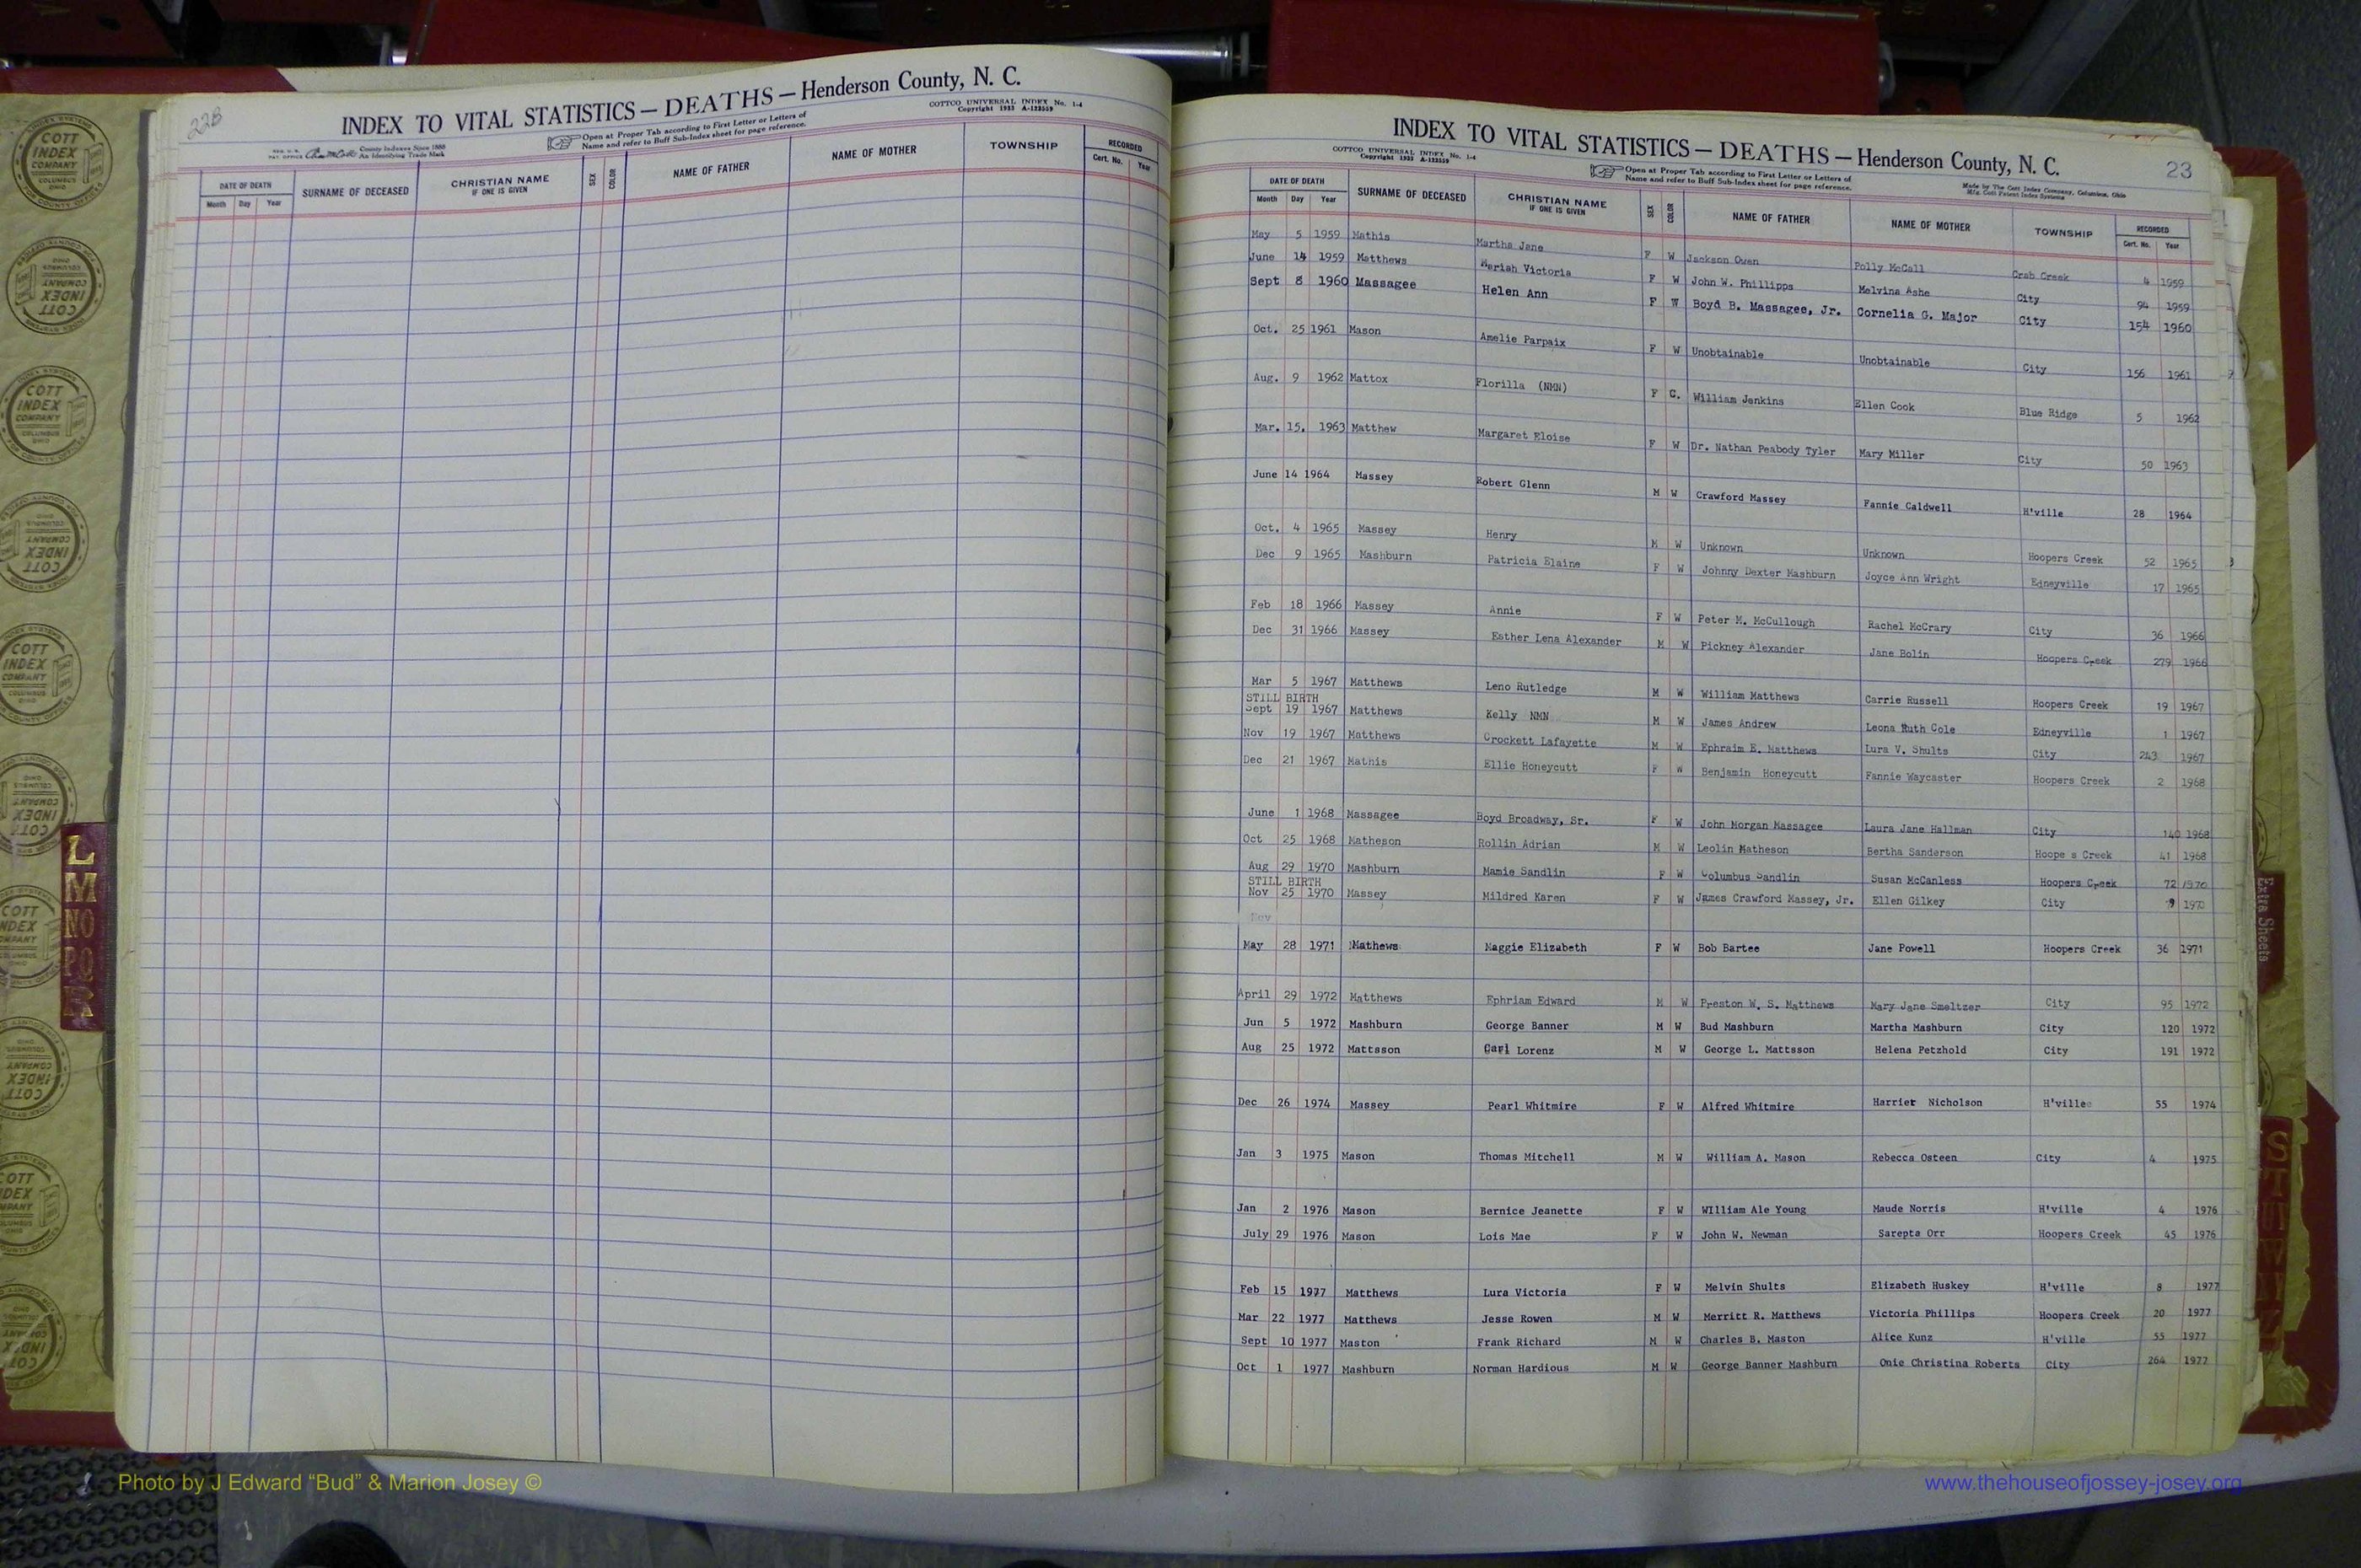 22B
INDEX TO VITAL STATISTICS — DEATHS — Henderson County, N. C.
COTTCO UNIVERSAL INDEX No. 1-4
Copyright 1933 A-123559
County Indexes Since 1888
An Identifying Trade Mark
Open at Proper Tab according to First Letter or Letters of
Name and refer to Buff Sub-Index sheet for page reference.
DATE OF DEATH SURNAME OF DECEASED CHRISTIAN NAME IF ONE IS GIVEN SEX COLOR NAME OF FATHER NAME OF MOTHER TOWNSHIP RECORDED
Month Day Year Cert. No. Year
INDEX TO VITAL STATISTICS — DEATHS — Henderson County, N. C. 23
COTTCO UNIVERSAL INDEX No. 1-4
Copyright 1933 A-123559
Open at Proper Tab according to First Letter or Letters of
Name and refer to Buff Sub-Index sheet for page reference.
Made by The Cott Index Company, Columbus, Ohio
Mfg. Cott Patent Index Systems
DATE OF DEATH SURNAME OF DECEASED CHRISTIAN NAME IF ONE IS GIVEN SEX COLOR NAME OF FATHER NAME OF MOTHER TOWNSHIP RECORDED
Month Day Year Cert. No. Year
May 5 1959 Mathis Martha Jane F W Jackson Owen Polly McCall Crab Creek 4 1959
June 14 1959 Matthews Meriah Victoria F W John W. Phillipps Melvina Ashe City 94 1959
Sept 8 1960 Massagee Helen Ann F W Boyd B. Massagee, Jr. Cornelia G. Major City 154 1960
Oct. 25 1961 Mason Amelie Parpaix F W Unobtainable Unobtainable City 156 1961
Aug. 9 1962 Mattox Florilla (NMN) F C. William Jenkins Ellen Cook Blue Ridge 5 1962
Mar. 15, 1963 Matthew Margaret Eloise F W Dr. Nathan Peabody Tyler Mary Miller City 50 1963
June 14 1964 Massey Robert Glenn M W Crawford Massey Fannie Caldwell H'ville 28 1964
Oct. 4 1965 Massey Henry M W Unknown Unknown Hoopers Creek 52 1965
Dec 9 1965 Mashburn Patricia Elaine F W Johnny Dexter Mashburn Joyce Ann Wright Edneyville 17 1965
Feb 18 1966 Massey Annie F W Peter M. McCullough Rachel McCrary City 36 1966
Dec 31 1966 Massey Esther Lena Alexander M W Pickney Alexander Jane Bolin Hoopers Creek 279 1966
Mar 5 1967 Matthews Leno Rutledge M W William Matthews Carrie Russell Hoopers Creek 19 1967
STILL BIRTH
Sept 19 1967 Matthews Kelly NMN M W James Andrew Leona Ruth Cole Edneyville 1 1967
Nov 19 1967 Matthews Crockett Lafayette M W Ephraim E. Matthews Lura V. Shults City 243 1967
Dec 21 1967 Mathis Ellie Honeycutt F W Benjamin Honeycutt Fannie Waycaster Hoopers Creek 2 1968
June 1 1968 Massagee Boyd Broadway, Sr. F W John Morgan Massagee Laura Jane Hallman City 140 1968
Oct 25 1968 Matheson Rollin Adrian M W Leolin Matheson Bertha Sanderson Hoope s Creek 41 1968
Aug 29 1970 Mashburn Mamie Sandlin F W Columbus Sandlin Susan McCanless Hoopers Creek 72 1970
STILL BIRTH
Nov 25 1970 Massey Mildred Karen F W James Crawford Massey, Jr. Ellen Gilkey City 9 1970
Nov
May 28 1971 Mathews Maggie Elizabeth F W Bob Bartee Jane Powell Hoopers Creek 36 1971
April 29 1972 Matthews Ephriam Edward M W Preston W. S. Matthews Mary Jane Smeltzer City 95 1972
Jun 5 1972 Mashburn George Banner M W Bud Mashburn Martha Mashburn City 120 1972
Aug 25 1972 Mattsson Carl Lorenz M W George L. Mattsson Helena Petzhold City 191 1972
Dec 26 1974 Massey Pearl Whitmire F W Alfred Whitmire Harriet Nicholson H'ville 55 1974
Jan 3 1975 Mason Thomas Mitchell M W William A. Mason Rebecca Osteen City 4 1975
Jan 2 1976 Mason Bernice Jeanette F W WIlliam Ale Young Maude Norris H'ville 4 1976
July 29 1976 Mason Lois Mae F W John W. Newman Sarepta Orr Hoopers Creek 45 1976
Feb 15 1977 Matthews Lura Victoria F W Melvin Shults Elizabeth Huskey H'ville 8 1977
Mar 22 1977 Matthews Jesse Rowen M W Merritt R. Matthews Victoria Phillips Hoopers Creek 20 1977
Sept 10 1977 Maston Frank Richard M W Charles B. Maston Alice Kunz H'ville 55 1977
Oct 1 1977 Mashburn Norman Hardious M W George Banner Mashburn Onie Christina Roberts City 264 1977
L
M
NO
PQ
R
Extra Sheets
COTT INDEX COMPANY COLUMBUS OHIO
Photo by J Edward “Bud” & Marion Josey ©
www.thehouseofjossey-josey.org